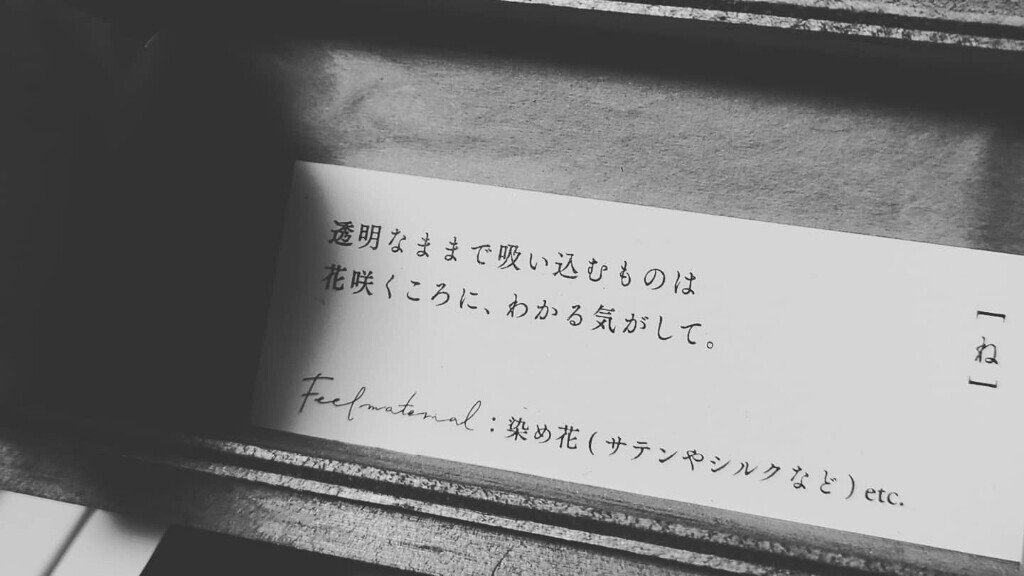 透明なままで吸い込むものは
花咲くころに、わかる気がして。
[ね]
Feelmaterial：染め花(サテンやシルクなど)etc.